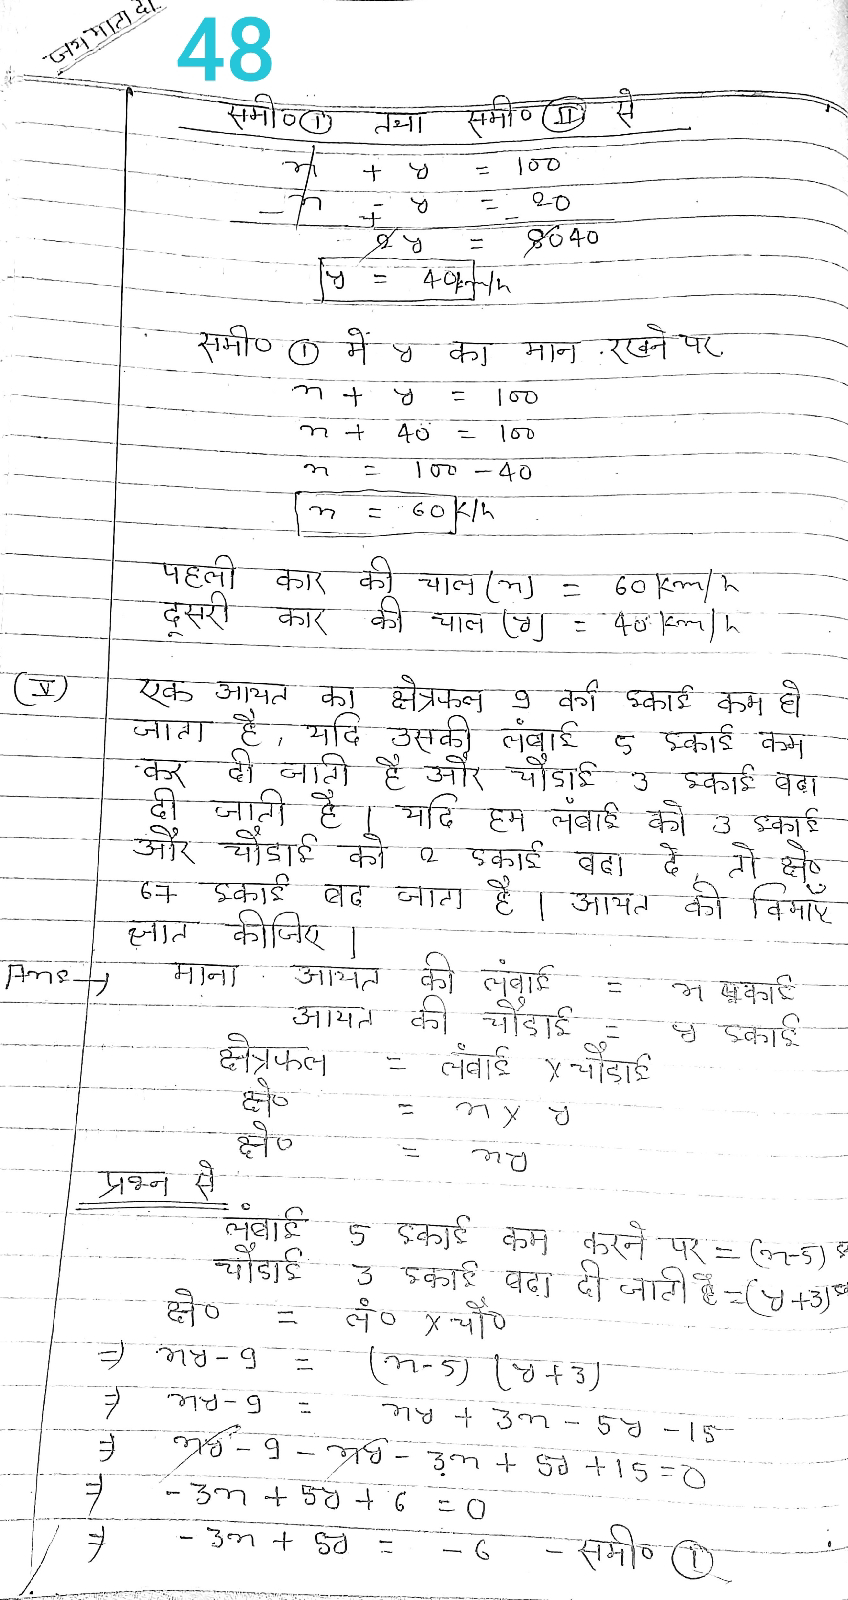 जय माता दी
48
समी० ① तथा समी० Ⓘⓘ से
x + y = 100
- x - y = 20
+ -
2y = 80 40
y = 40km/h
समी० ① में y का मान रखने पर
x + y = 100
x + 40 = 100
x = 100 - 40
x = 60 k/h
पहली कार की चाल (x) = 60 km/h
दूसरी कार की चाल (y) = 40 km/h
(V) एक आयत का क्षेत्रफल 9 वर्ग इकाई कम हो
जाता है, यदि उसकी लंबाई 5 इकाई कम
कर दी जाती है और चौडाई 3 इकाई बढा
दी जाती है। यदि हम लंबाई को 3 इकाई
और चौडाई को 2 इकाई बढा दे, तो क्षे०
67 इकाई बढ जाता है। आयत की विमाएँ
ज्ञात कीजिए।
Ans → माना आयत की लंबाई = x इकाई
आयत की चौडाई = y इकाई
क्षेत्रफल = लंबाई × चौडाई
क्षे० = x × y
क्षे० = xy
प्रश्न से
लंबाई 5 इकाई कम करने पर = (x-5)
चौडाई 3 इकाई बढा दी जाती है = (y+3)
क्षे० = लं० × चौ०
⇒ xy - 9 = (x-5) (y+3)
⇒ xy - 9 = xy + 3x - 5y - 15
⇒ xy - 9 - xy - 3x + 5y + 15 = 0
⇒ -3x + 5y + 6 = 0
⇒ -3x + 5y = -6 - समी० ①